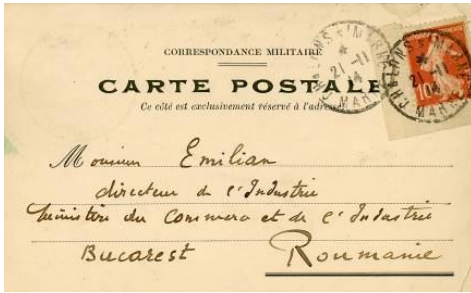 CORRESPONDANCE MILITAIRE
CARTE POSTALE
Ce côté est exclusivement réservé à l'adresse
CHALONS S/ MARNE
21-11
14
MARNE
10
CHALONS S/ MARNE
21-11
14
MARNE
Monsieur Emilian
directeur de l'Industrie
Ministère du Commerce et de l'Industrie
Bucarest Roumanie